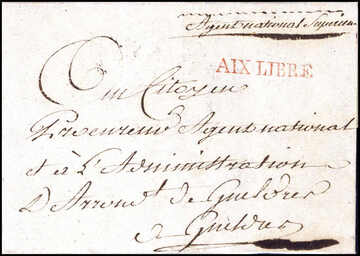 Agent national Supérieur
AIX LIBRE
Au Citoyen
Procureur Agent national
et à L'Administration
D'Arrond.t de Gueldres
à Gueldres